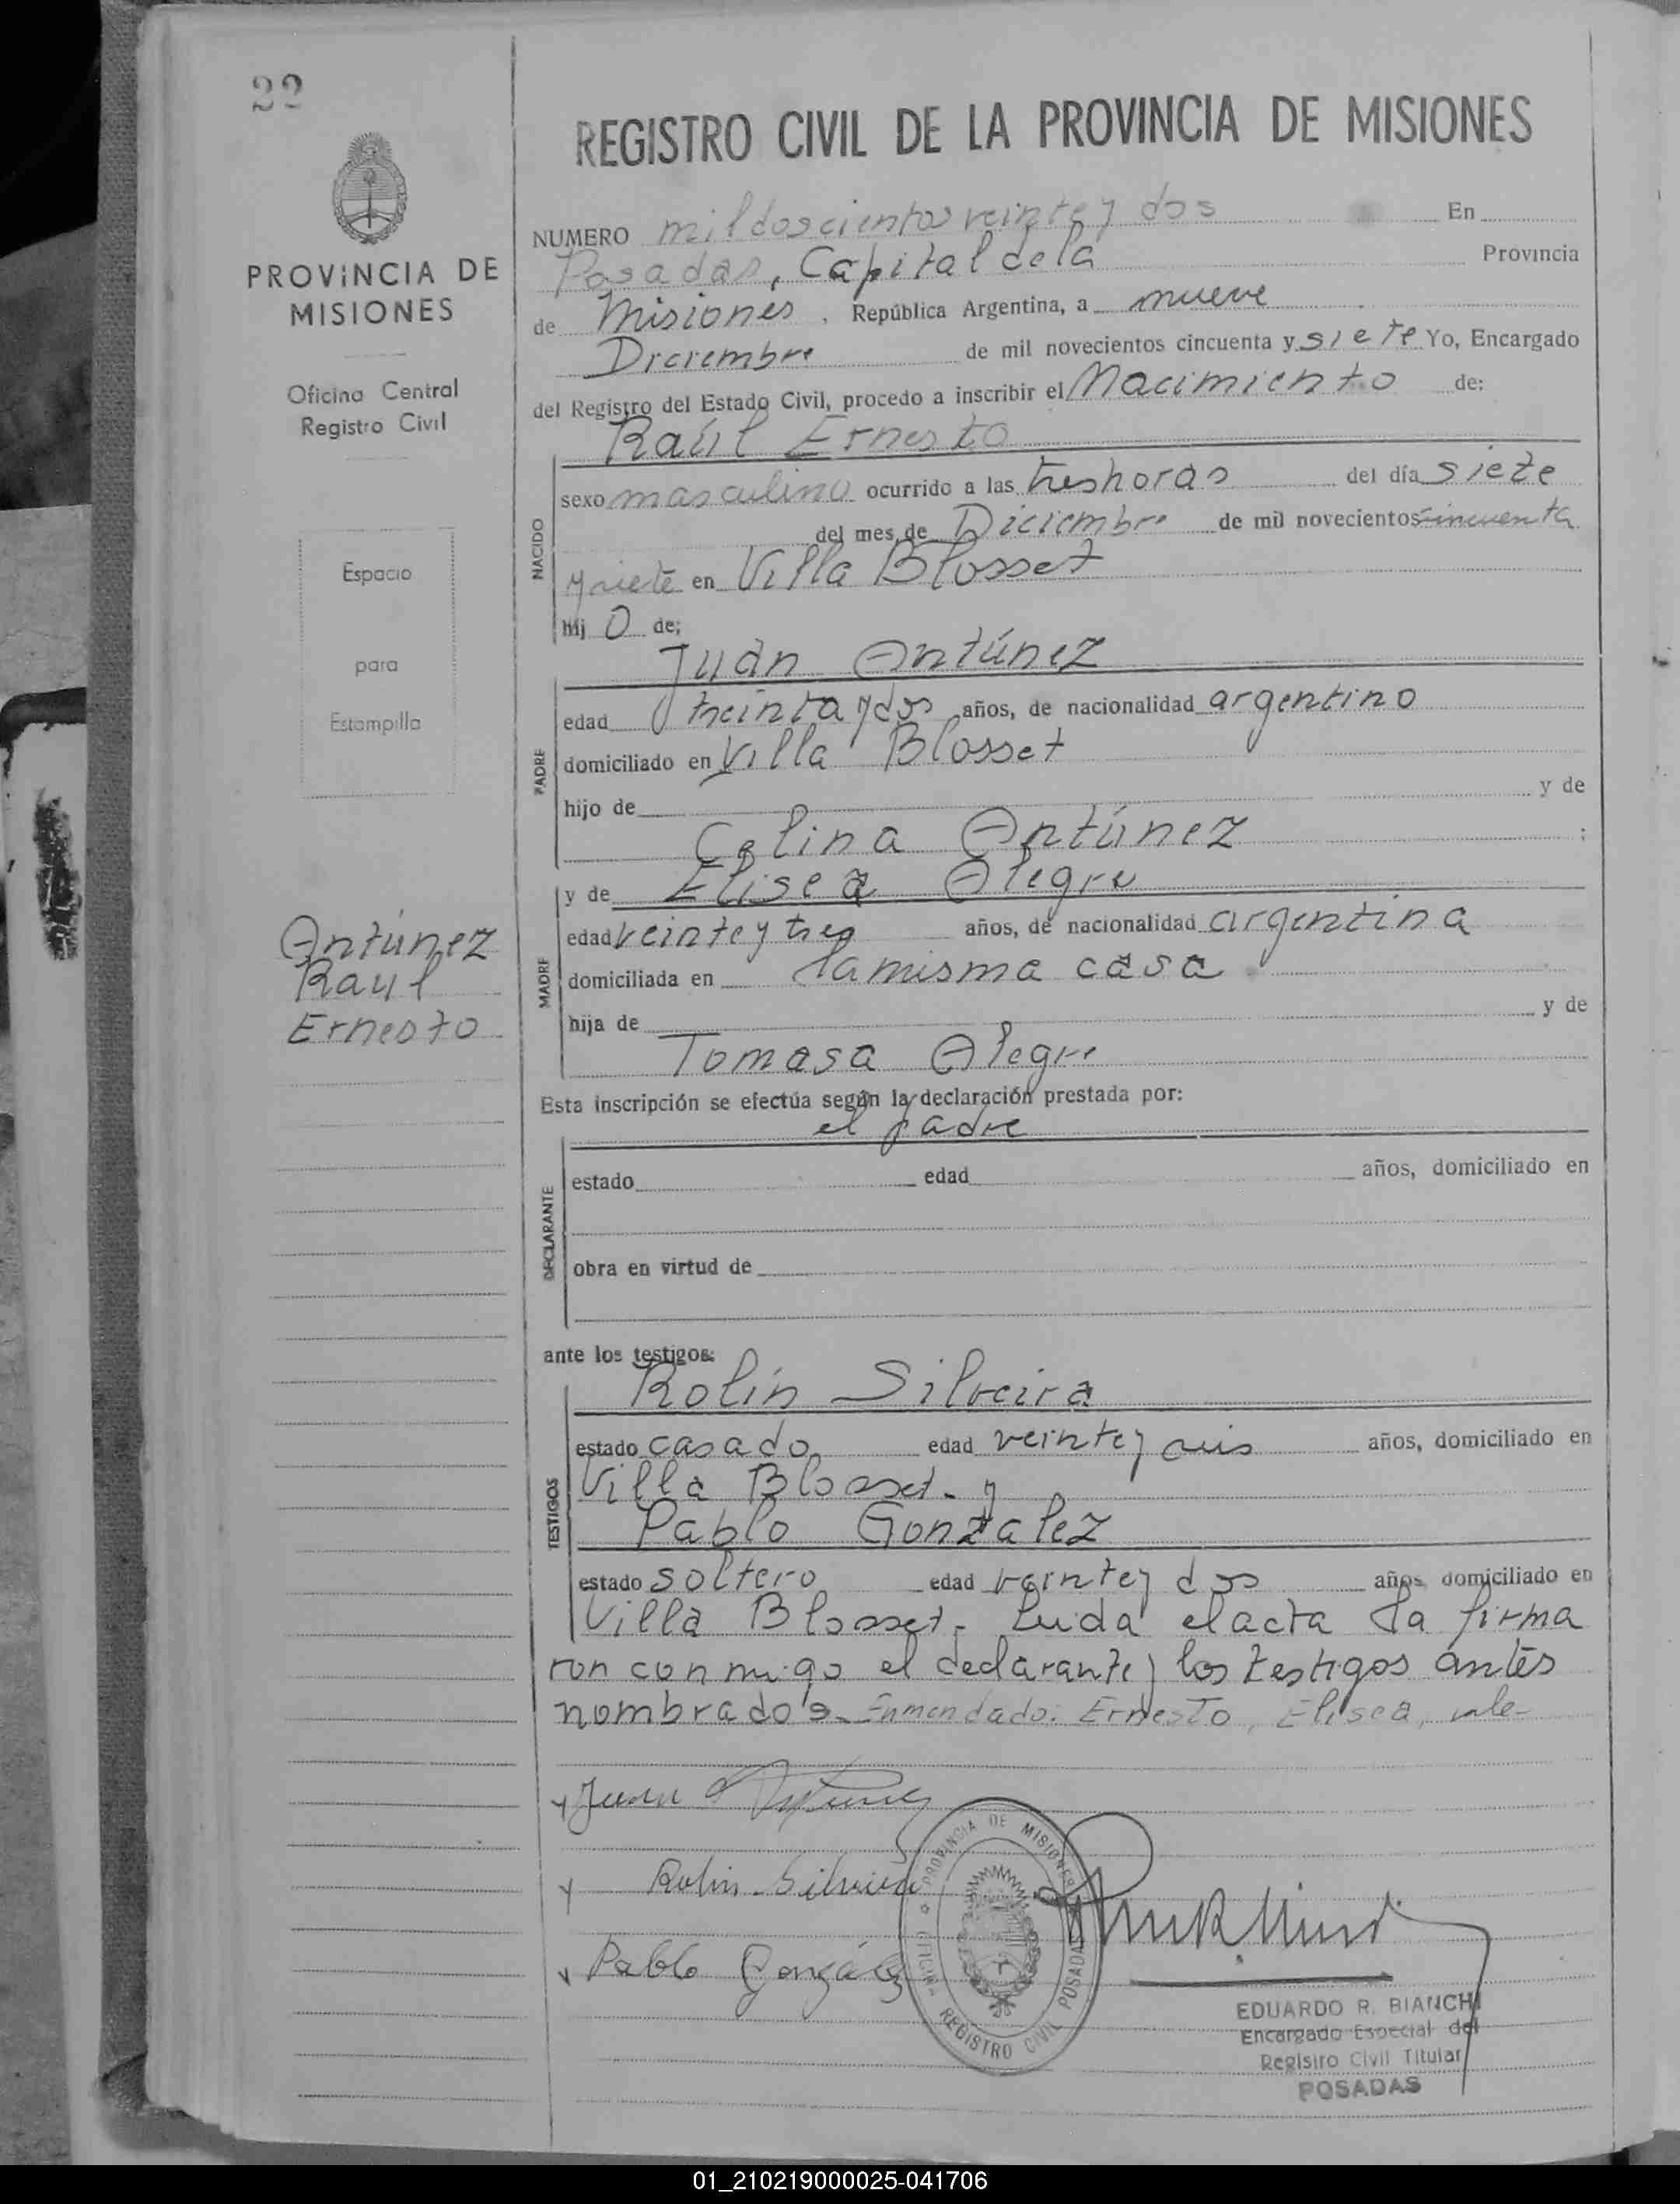 22
PROVINCIA DE
MISIONES
Oficina Central
Registro Civil
Espacio
para
Estampilla
Antúnez
Raul
Ernesto
REGISTRO CIVIL DE LA PROVINCIA DE MISIONES
NUMERO mil doscientos veinte y dos En
Posadas, Capital de la Provincia
de Misiones, República Argentina, a nueve
Diciembre de mil novecientos cincuenta y siete Yo, Encargado
del Registro del Estado Civil, procedo a inscribir el Nacimiento de:
Raúl Ernesto
NACIDO
sexo masculino ocurrido a las tres horas del día siete
del mes de Diciembre de mil novecientos cincuenta
y siete en Villa Blosset
hij o de;
Juan Antúnez
PADRE
edad treinta y dos años, de nacionalidad argentino
domiciliado en Villa Blosset
hijo de y de
Celina Antúnez :
y de Elisea Alegre
MADRE
edad veinte y tres años, de nacionalidad argentina
domiciliada en la misma casa
hija de y de
Tomasa Alegre
Esta inscripción se efectúa según la declaración prestada por:
el padre
DECLARANTE
estado edad años, domiciliado en
obra en virtud de
ante los testigos:
Rolín Silveira
TESTIGOS
estado casado edad veinte y seis años, domiciliado en
Villa Blosset. y
Pablo Gonzalez
estado soltero edad veinte y dos años domiciliado en
Villa Blosset. Leida el acta la firma
ron conmigo el declarante y los testigos antes
nombrados. Enmendado: Ernesto, Elisea, vale-
Juan Antúnez
Rolin Silveira
Pablo González
PROVINCIA DE MISIONES
REGISTRO CIVIL POSADAS
EDUARDO R. BIANCHI
Encargado Especial del
Registro Civil Titular
POSADAS
01_210219000025-041706